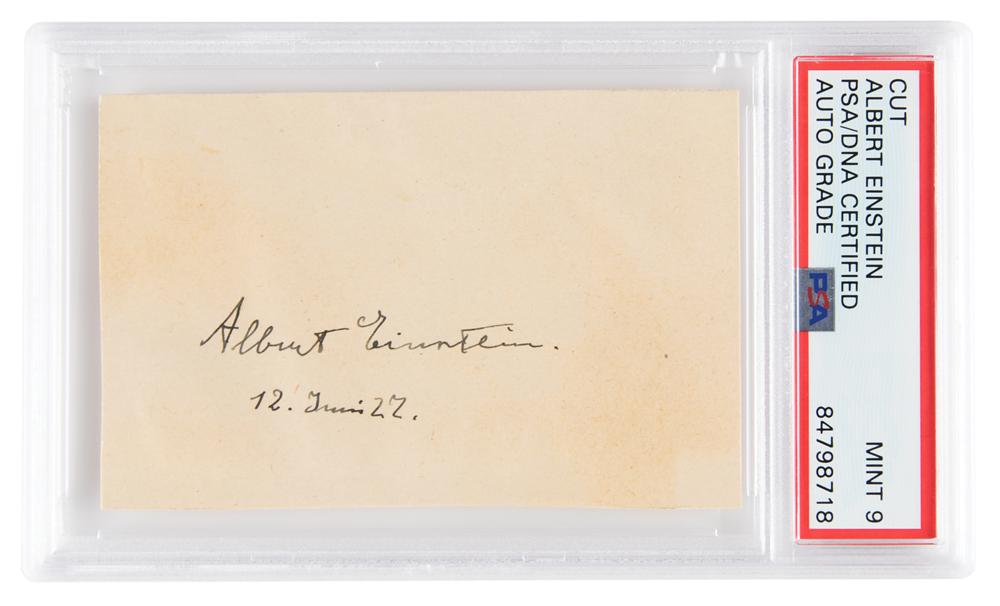 Albert Einstein.
12. Juni 22.
CUT
ALBERT EINSTEIN
PSA/DNA CERTIFIED
AUTO GRADE
MINT 9
84798718
PSA